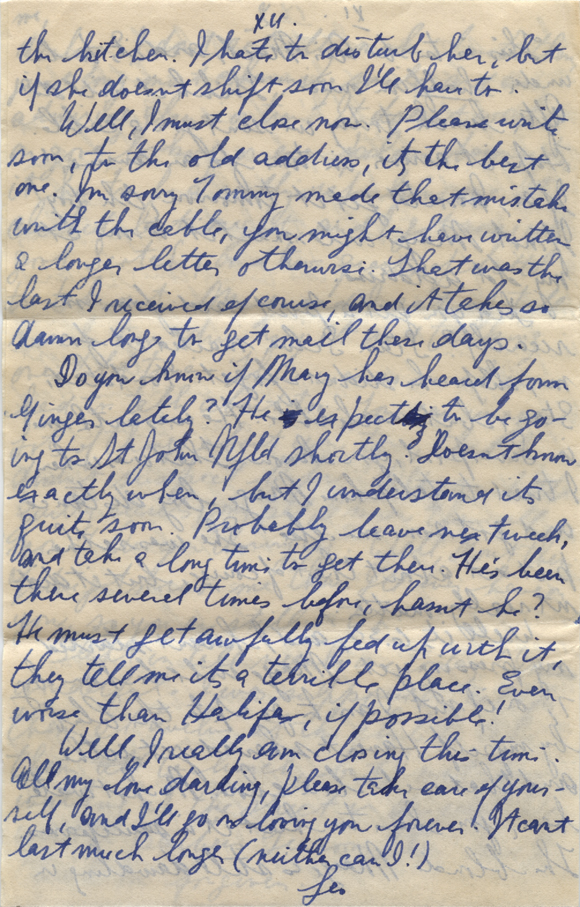 XII.
the kitchen. I hate to disturb her, but
if she doesnt shift soon I'll have to.
Well, I must close now. Please write
soon, to the old address, its the best
one. I'm sorry Tommy made that mistake
with the cable, you might have written
a longer letter otherwise. That was the
last I received of course, and it takes so
damn long to get mail these days.
Do you know if Mary has heard from
Ginger lately? He expects to be go-
ing to St John Nfld shortly. Doesnt know
exactly when, but I understand its
quite soon. Probably leave next week,
and take a long time to get there. He's been
there several times before, hasnt he?
He must get awfully fed up with it,
they tell me its a terrible place. Even
worse than Halifax, if possible!
Well, I really am closing this time.
All my love darling, please take care of your-
self, and I'll go on loving you forever. It cant
last much longer (neither can I!)
Les